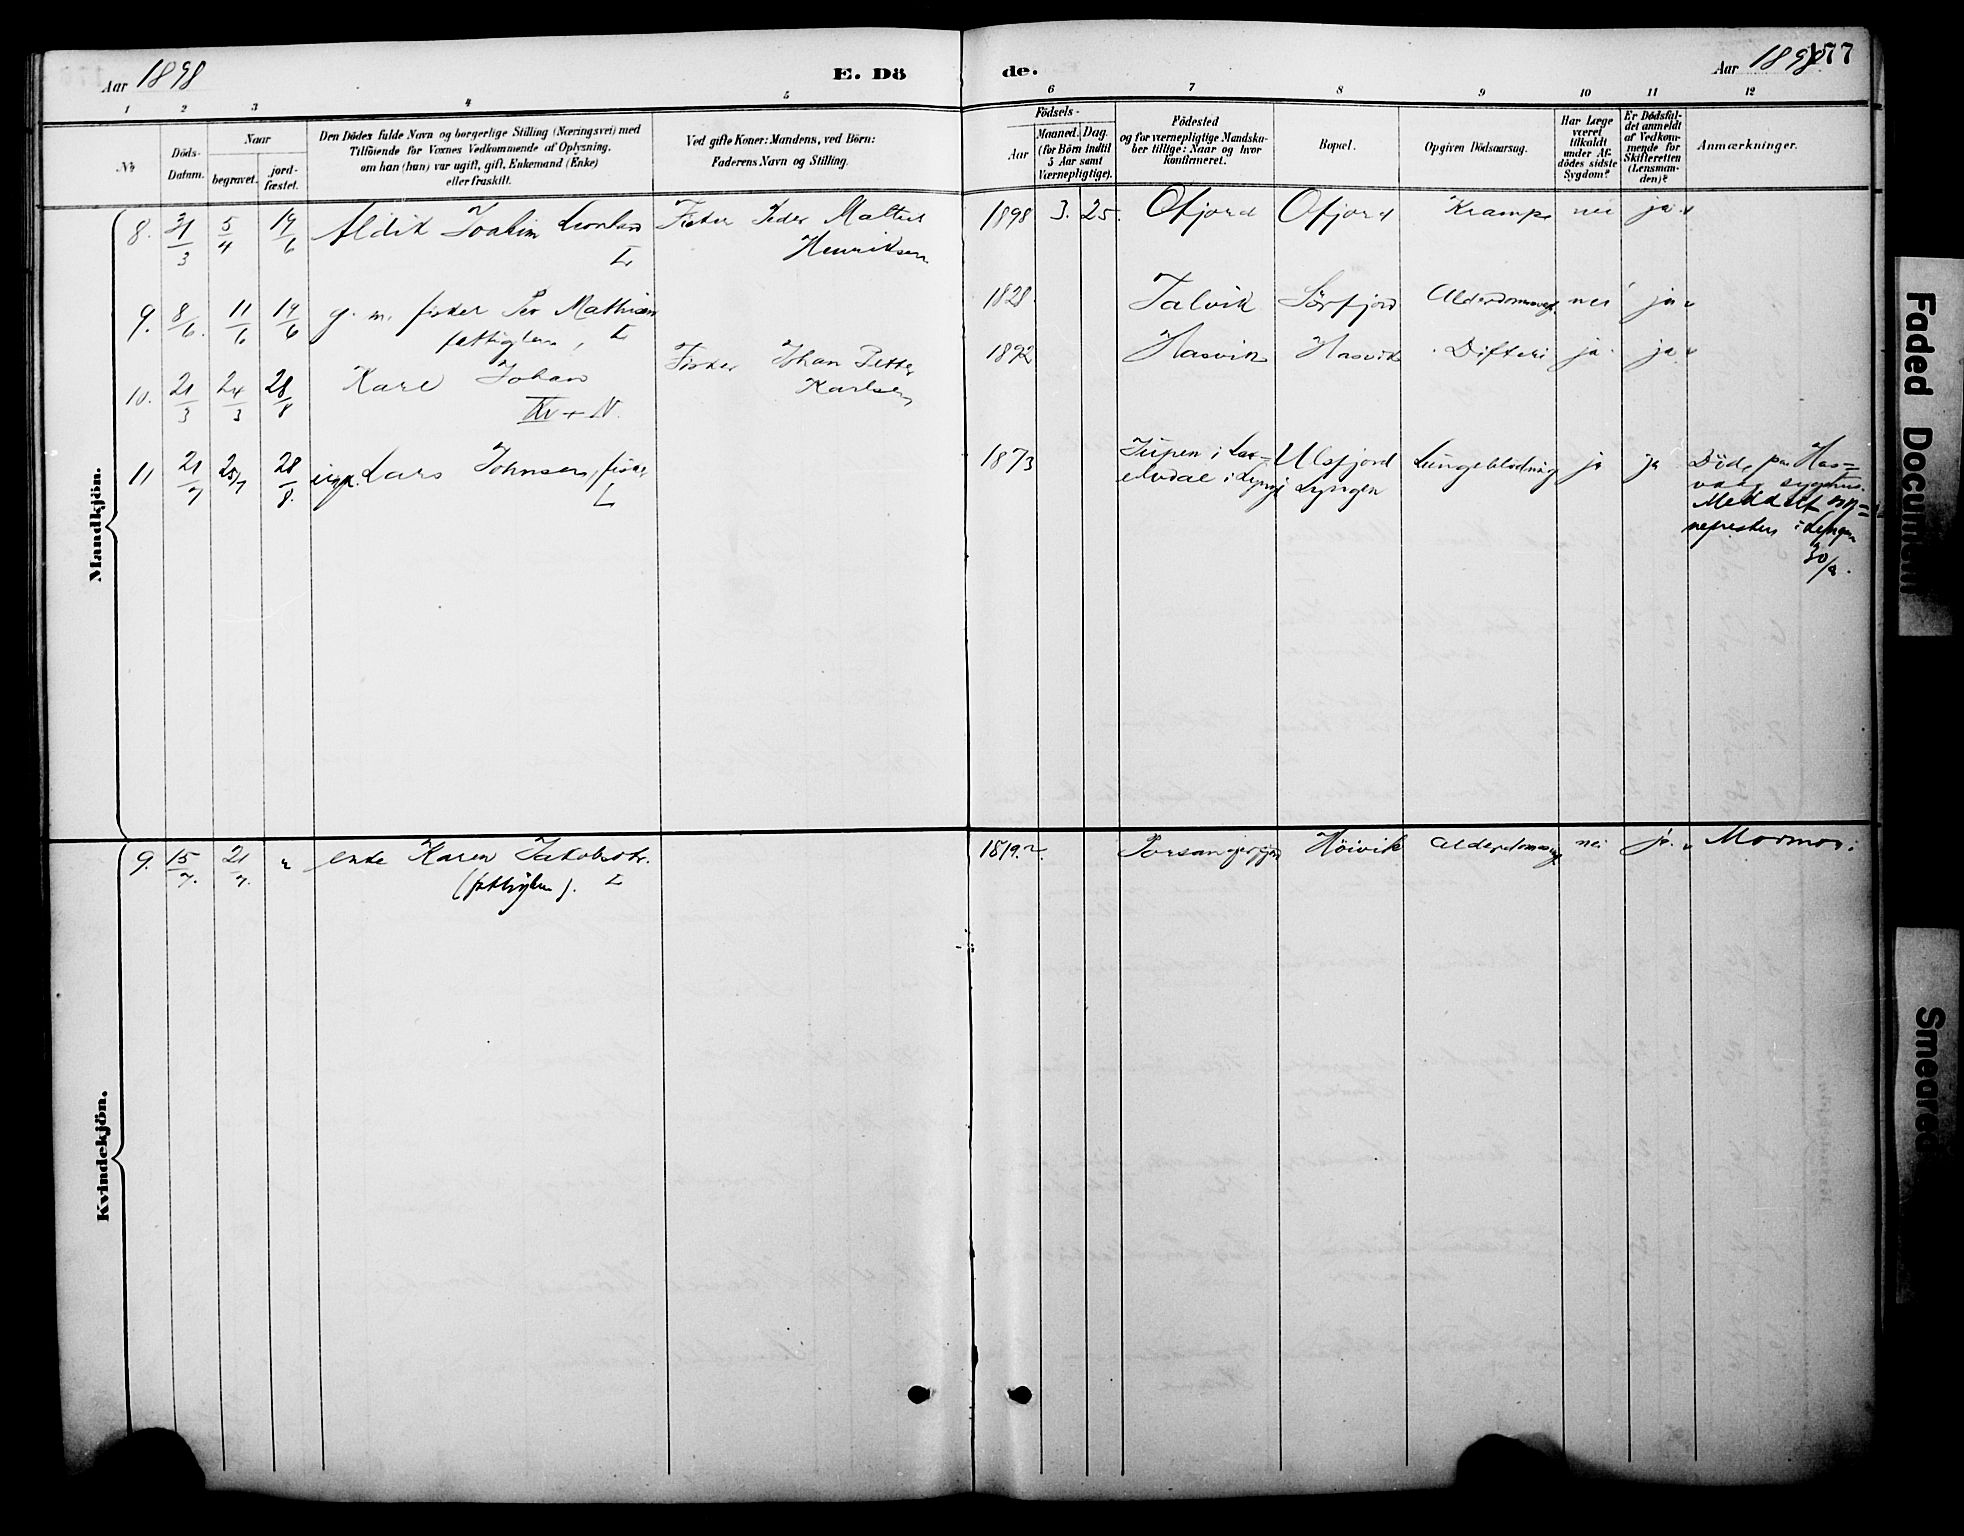 Aar 1898
E. Dö
de.
Aar 1898.
177
1 2 3 4 5 6 7 8 9 10 11 12
№
Döds-
Datum.
Naar
begravet.
jord-
fæstet.
Den Dödes fulde Navn og borgerlige Stilling (Næringsvei) med
Tilföiende for Voxnes Vedkommende af Oplysning,
om han (hun) var ugift, gift, Enkemand (Enke)
eller fraskilt.
Ved gifte Koner: Mandens, ved Börn:
Faderens Navn og Stilling.
Födsels-
Aar
Maaned. Dag.
(for Börn indtil
5 Aar samt
Værnepligtige).
Födested
og for værnepligtige Mandska-
ber tillige: Naar og hvor
konfirmeret.
Bopæl.
Opgiven Dödsaarsag.
Har Læge
været
tilkaldt
under Af-
dödes sidste
Sygdom?
Er Dödsfal-
det anmeldt
af Vedkom-
mende for
Skifteretten
(Lensman-
den)?
Anmærkninger.
Mandkjön.
8. 31/3 5/4 19/6 Aldik Joakim Fisker Peder Maltus 1898 3. 25. Ofjord Ofjord Krampe nei ja
L. Henriksen
9. 8/6. 11/6 19/6 g. m. fisker Per Mathisen 1828 Talvik Sørfjord nei ja
fattiglem, L
10. 21/3 24/3 28/8 Karl Johan Fisker Johan Petter 1892 Hasvik Hasvik Difteri ja ja
Karlsen
N.
11 21/7 25/7 28/8. ugk. Lars Johnsen, fisker 1873 i Ulsfjord Lungeblödning ja ja Död paa Has=
L i Lyngen vaag sygehus.
Meddelt
i Lyngen
30/8.
Kvindekjön.
9. 15/7. 21/7. " enke Karen Jakobsdtr. 1819. Porsangerfjord Höivik nei ja.
(fattiglem). L
Faded Document
Smeared